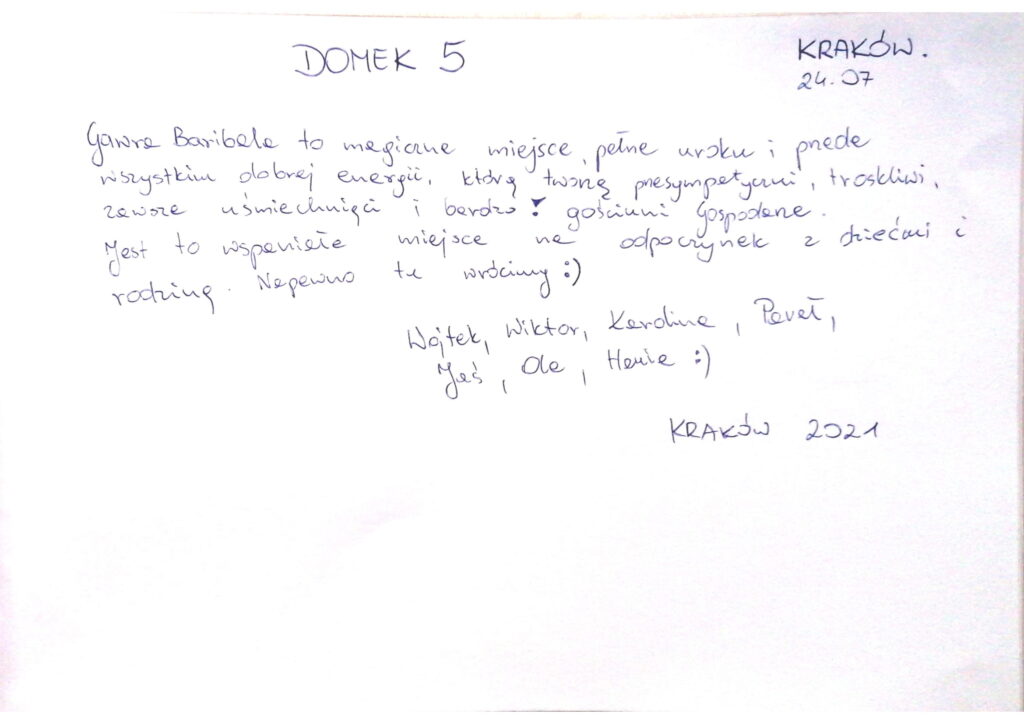 DOMEK 5
KRAKÓW.
24.07
Gawra Baribala to magiczne miejsce, pełne uroku i przede
wszystkim dobrej energii, którą tworzą przesympatyczni, troskliwi,
zawsze uśmiechnięci i bardzo gościnni Gospodarze.
Jest to wspaniałe miejsce na odpoczynek z dziećmi i
rodziną. Napewno tu wrócimy :)
Wojtek, Wiktor, Karolina, Paweł,
Jaś, Ola, Hania :)
KRAKÓW 2021